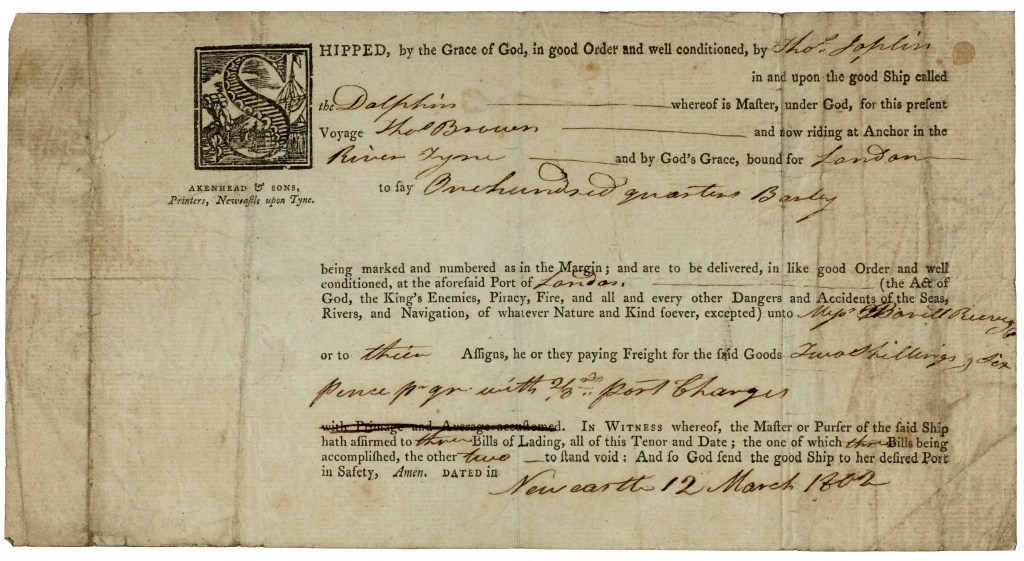 SHIPPED, by the Grace of God, in good Order and well conditioned, by Thos. Joplin
in and upon the good Ship called
the Dolphin whereof is Maſter, under God, for this preſent
Voyage Thos Brown and now riding at Anchor in the
River Tyne and by God's Grace, bound for London
to ſay One hundred quarters Barley
AKENHEAD & SONS,
Printers, Newcaſtle upon Tyne.
being marked and numbered as in the Margin; and are to be delivered, in like good Order and well
conditioned, at the aforeſaid Port of London. (the Act of
God, the King's Enemies, Piracy, Fire, and all and every other Dangers and Accidents of the Seas,
Rivers, and Navigation, of whatever Nature and Kind ſoever, excepted) unto Meſsrs
or to their Aſſigns, he or they paying Freight for the ſaid Goods Two Shillings & Six
pence pr qr with 2/3rds port Charges
with Primage and Average accuſtomed. IN WITNESS whereof, the Maſter or Purſer of the ſaid Ship
hath aſſirmed to three Bills of Lading, all of this Tenor and Date; the one of which three Bills being
accompliſhed, the other two to ſtand void: And ſo God ſend the good Ship to her deſired Port
in Safety, Amen. DATED in
Newcastle 12 March 1802